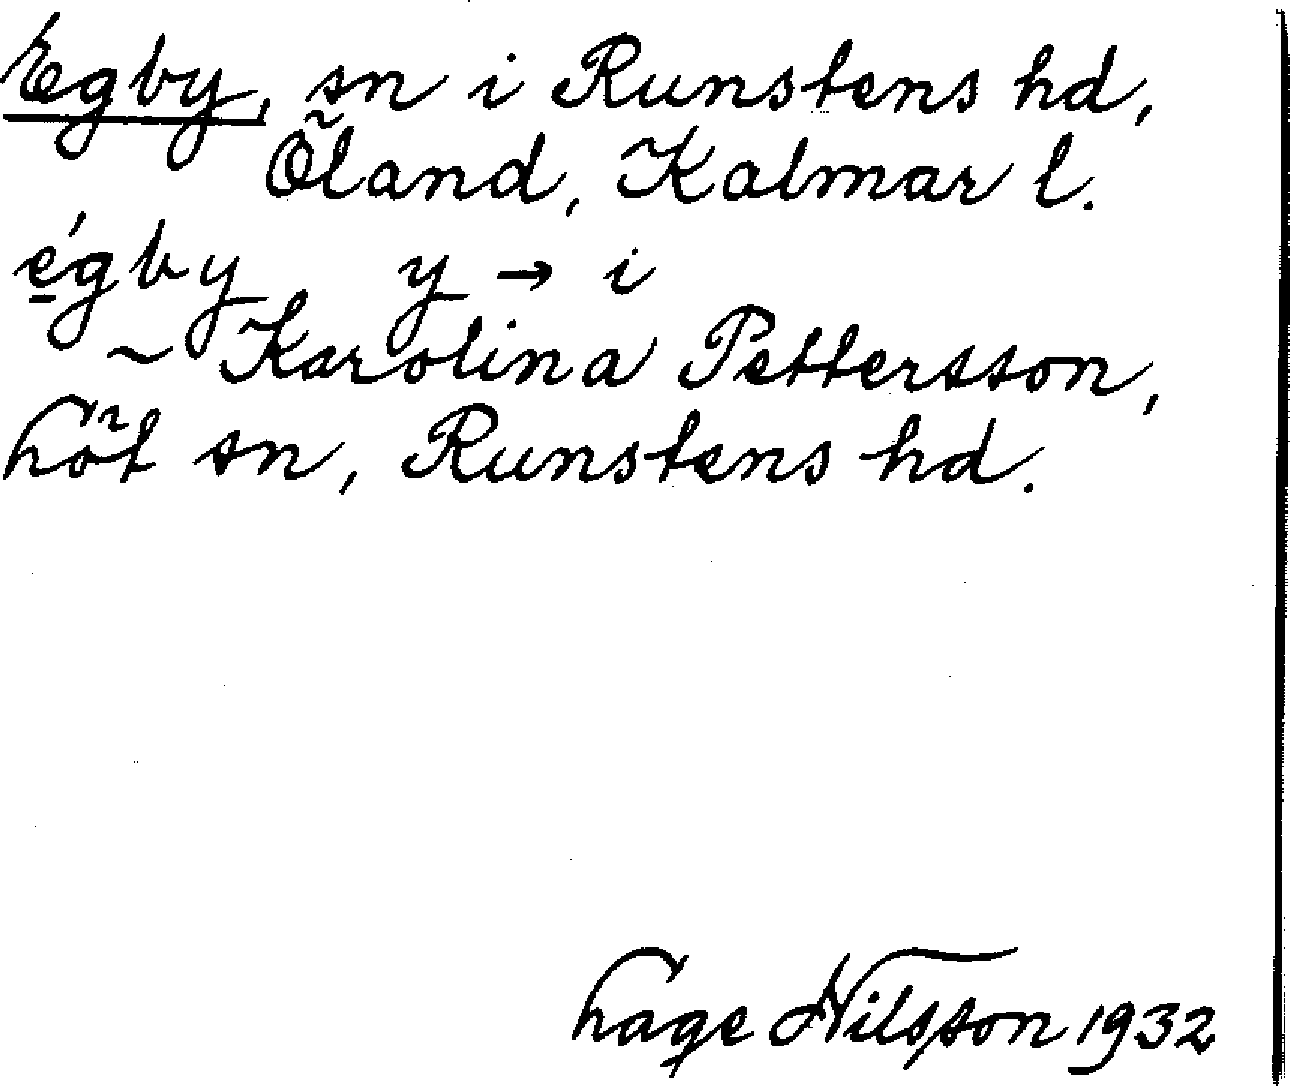 Egby, sn i Runstens hd,
Öland, Kalmar l.
é̱gby y → i
~ Karolina Pettersson,
Löt sn, Runstens hd.
Hage Nilsson 1932